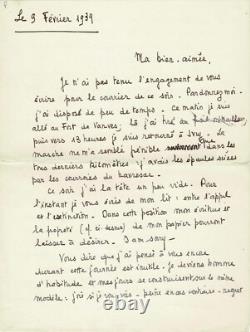 Le 9 Février 1939
Ma bien-aimée,
Je n'ai pas tenu l'engagement de vous
écrire pour le courrier de ce soir. Pardonnez-moi
j'ai disposé de peu de temps. Ce matin je suis
allé au Fort de Vanves, là j'ai tiré au
puis vers 13 heures je suis retourné à Ivry. Cette
marche me m'a semblé pénible dans les
trois derniers kilomètres j'avais les épaules sciées
par les courroies du havresac.
Ce soir j'ai la tête un peu vide. Pour
l'instant je vous écris de mon lit : entre l'appel
et l'extinction. Dans cette position mon écriture et
la propreté (of course) de mon papier pourront
laisser à désirer. I am sorry
Vous dire que j'ai pensé à vous encore
durant cette journée est inutile. Je deviens homme
d'habitude et mes jours se construisent sur le même
modèle.